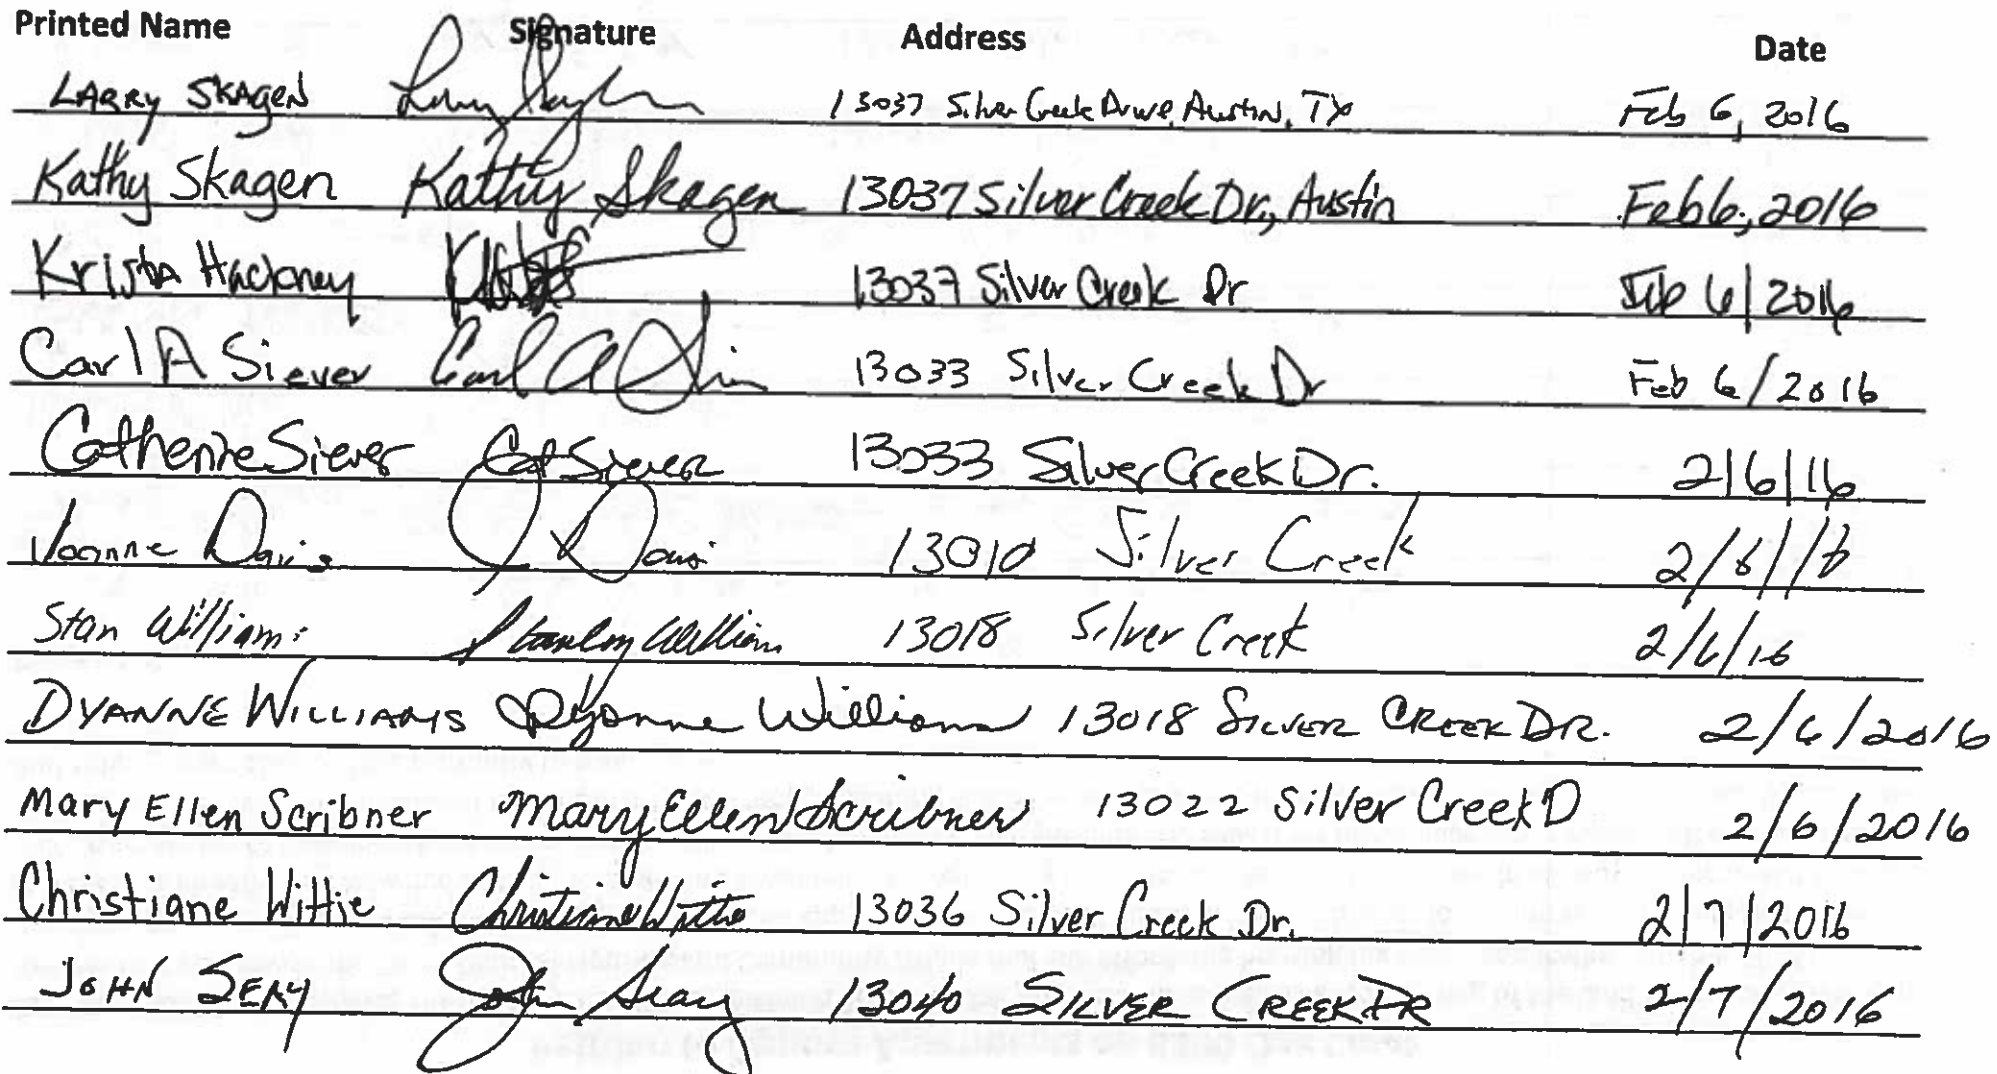 Printed Name Signature Address Date
LARRY SKAGEN 13037 Silver Creek Drive, Austin, TX Feb 6, 2016
Kathy Skagen Kathy Skagen 13037 Silver Creek Dr., Austin Feb 6, 2016
Krista Hackney 13037 Silver Creek Dr Feb 6/2016
Carl A Siever Carl A 13033 Silver Creek Dr Feb 6/2016
Catherine Siever Cat Siever 13033 Silver Creek Dr. 2/6/16
Joanne Davis J Davis 13010 Silver Creek 2/6/16
Stan Williams Stanley Williams 13018 Silver Creek 2/6/16
DYANNE WILLIAMS Dyanne Williams 13018 SILVER CREEK DR. 2/6/2016
Mary Ellen Scribner Mary Ellen Scribner 13022 Silver Creek D 2/6/2016
Christiane Wittie Christiane Wittie 13036 Silver Creek Dr. 2/7/2016
JOHN John SILVER CREEK DR 2/7/2016